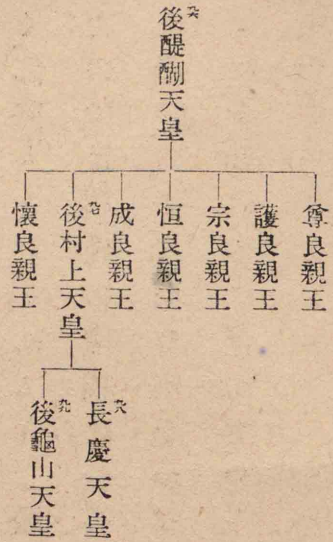 九六
後醍醐天皇
尊良親王
護良親王
宗良親王
恒良親王
成良親王
九七
後村上天皇
懷良親王
九八
長慶天皇
九九
後龜山天皇